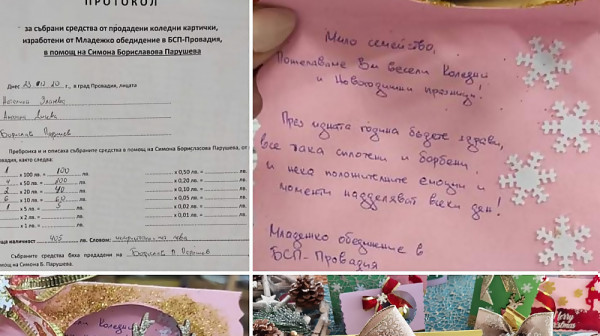 ПРОТОКОЛ
за събрани средства от продадени коледни картички,
изработени от Младежко обединение в БСП-Провадия,
в помощ на Симона Бориславова Парушева
Днес 23.12.20 г., в град Провадия, лицата
Преброиха и описаха събраните средства в помощ на Симона Бориславова Парушева, от
както следва:
1 х 100 лв. = 100 лв. х 0,50 лв. = лв.
х 50 лв. = 200 лв. х 0,20 лв. = лв.
2 х 20 лв. = 40 лв. х 0,10 лв. = лв.
6 х 10 лв. = 60 лв. х 0,05 лв. = лв.
1 х 5 лв. = 5 лв. х 0,02 лв. = лв.
х 2 лв. = лв. х 0,01 лв. = лв.
х 1 лв. = лв.
наличност 405 лв. Словом:
Събраните средства бяха предадени на Борислав П. Парушев
помощ на Симона Б. Парушева.
Мило семейство,
Пожелаваме Ви весели Коледни
и Новогодишни празници!
През идната година бъдете здрави,
все така сплотени и борбени
и нека положителните емоции и
моменти надделяват всеки ден!
Младежко обединение в
БСП-Провадия
Коледни
Merry
Christmas